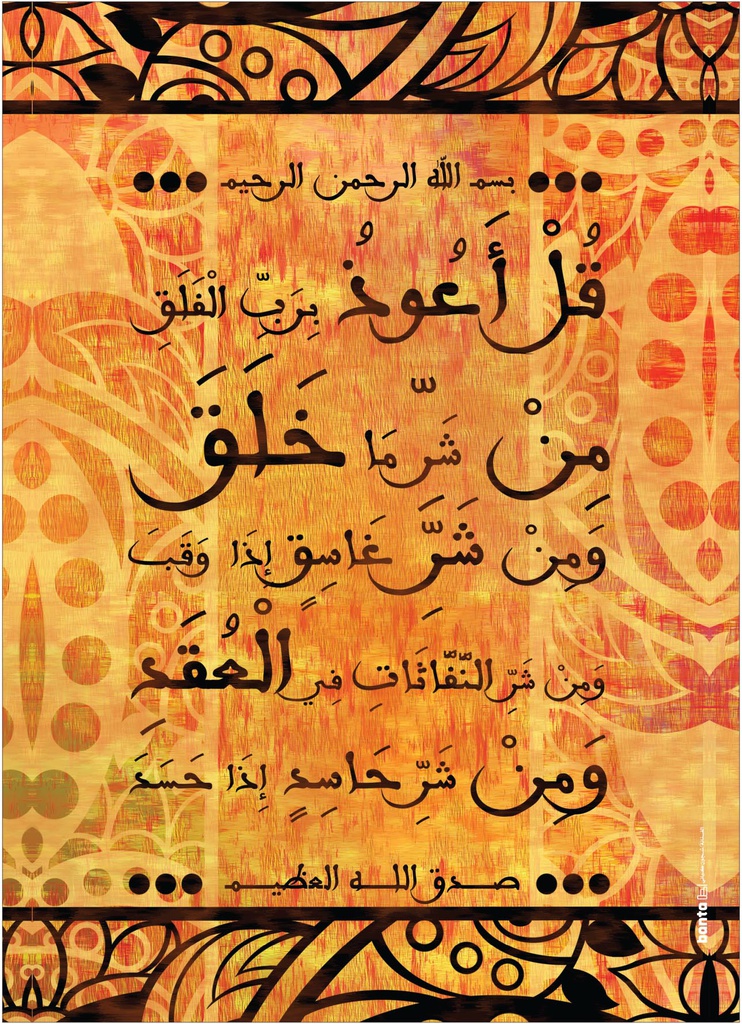 بسم الله الرحمن الرحيم
قُلْ أَعُوذُ بِرَبِّ الْفَلَقِ
مِنْ شَرِّ مَا خَلَقَ
وَمِنْ شَرِّ غَاسِقٍ إِذَا وَقَبَ
وَمِنْ شَرِّ النَّفَّاثَاتِ فِي الْعُقَدِ
وَمِنْ شَرِّ حَاسِدٍ إِذَا حَسَدَ
صدق الله العظيم
banta